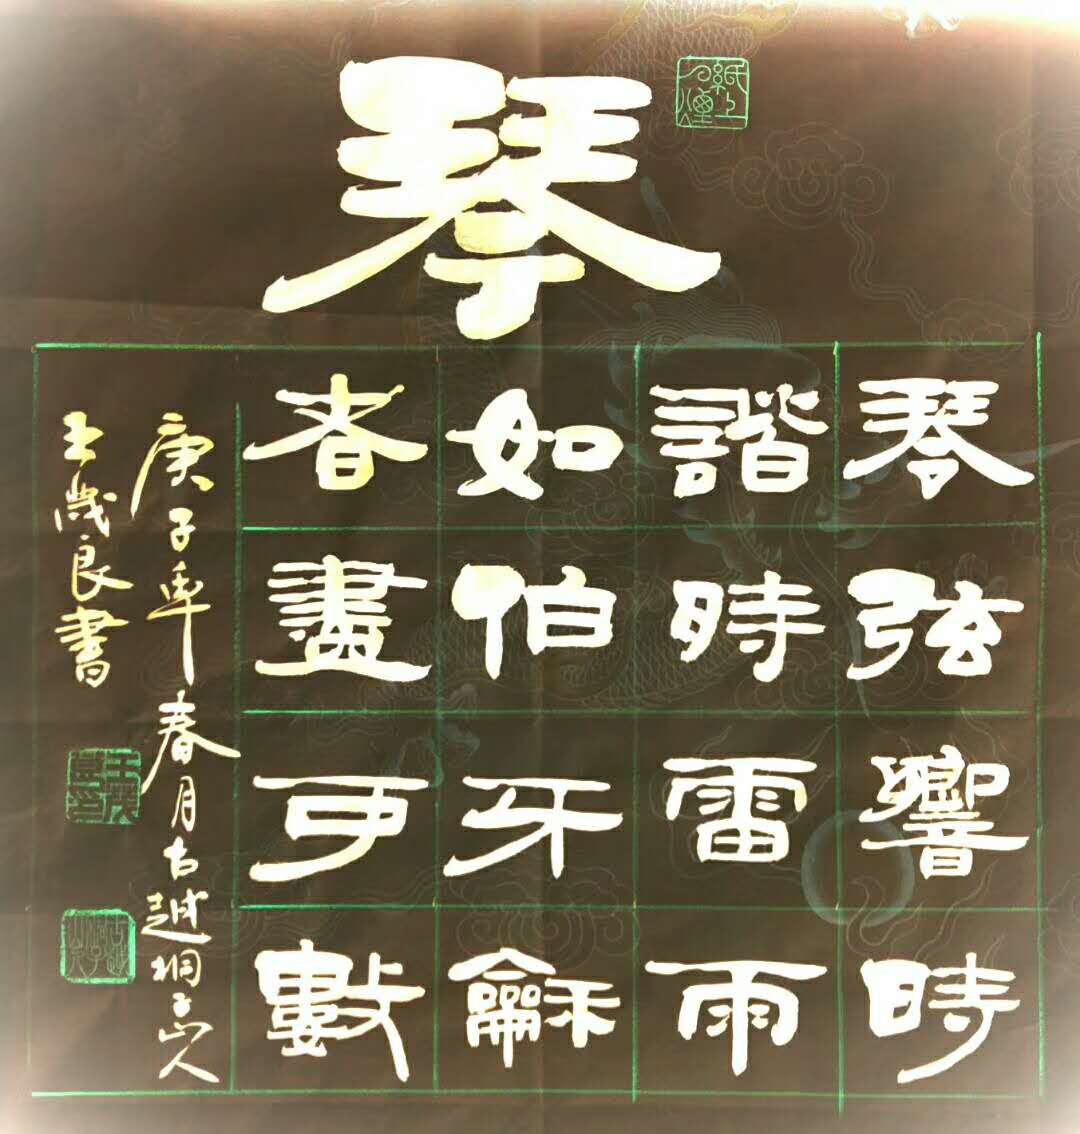 琴
琴弦響時
諧時雷雨
如伯牙龢
者盡可數
庚子年春月古越桐山人
王茂良書